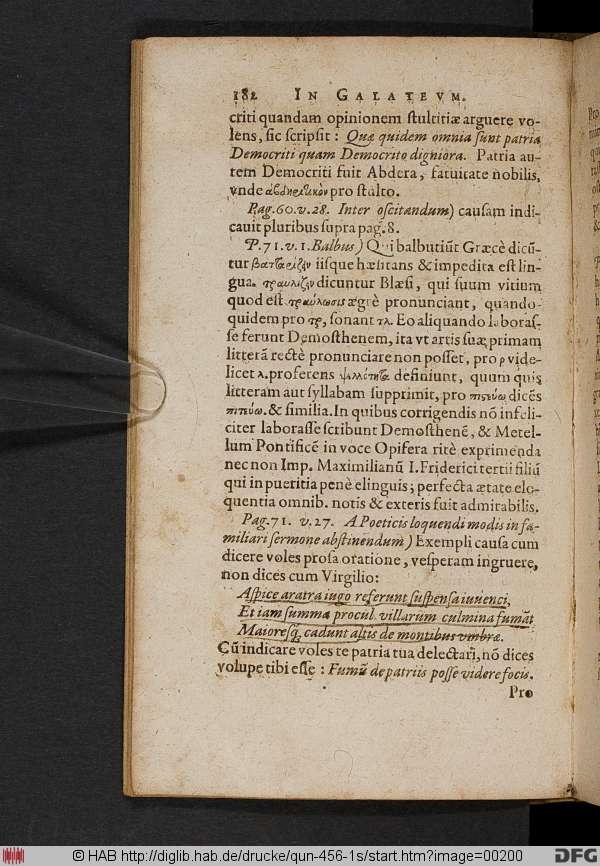 182 IN GALATEVM.
criti quandam opinionem stultitiæ arguere vo-
lens, sic scripsit: Quæ quidem omnia sunt patria
Democriti quam Democrito digniora. Patria au-
tem Democriti fuit Abdera, fatuitate nobilis,
vnde ἀβδηριτικὸν pro stulto.
Pag. 60. v. 28. Inter oscitandum) causam indi-
cauit pluribus supra pag. 8.
P. 71. v. 1. Balbus) Qui balbutiūt Græcè dicū-
tur βατταρίζην iisque hæsitans & impedita est lin-
gua. τραυλίζην dicuntur Blæsi, qui suum vitium
quod est τραύλωσις ægrè pronunciant, quando-
quidem pro τρ, sonant τλ. Eo aliquando laboras-
se ferunt Demosthenem, ita vt artis suæ primam
litterā rectè pronunciare non posset, pro ρ vide-
licet λ. proferens ψελλότητα definiunt, quum quis
litteram aut syllabam supprimit, pro πιστεύω dicēs
πιτεύω. & similia. In quibus corrigendis nō infeli-
citer laborasse scribunt Demosthenē, & Metel-
lum Pontificē in voce Opifera ritè exprimenda
nec non Imp. Maximilianū I. Friderici tertii filiū
qui in pueritia penè elinguis; perfecta ætate elo-
quentia omnib. notis & exteris fuit admirabilis.
Pag. 71. v. 27. A Poeticis loquendi modis in fa-
miliari sermone abstinendum) Exempli causa cum
dicere voles prosa oratione, vesperam ingruere,
non dices cum Virgilio:
Aspice aratra iugo referunt suspensa iuuenci,
Et iam summa procul villarum culmina fumāt
Maioresq́; cadunt altis de montibus vmbræ.
Cū indicare voles te patria tua delectari, nō dices
volupe tibi esse: Fumū de patriis posse videre focis.
Pro
© HAB http://diglib.hab.de/drucke/qun-456-1s/start.htm?image=00200
DFG